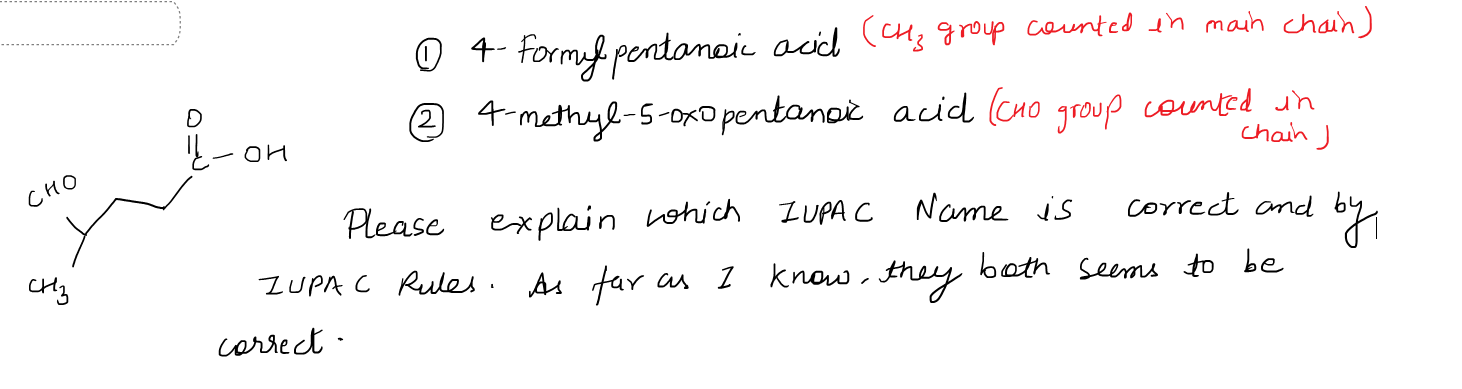 ① 4- Formyl pentanoic acid (CH3 group counted in main chain)
② 4-methyl-5-oxo pentanoic acid (CHO group counted in
chain)
O
C-OH
CHO
CH3
Please explain which IUPAC Name is correct and by
IUPAC Rules. As far as I know, they both seems to be
correct.